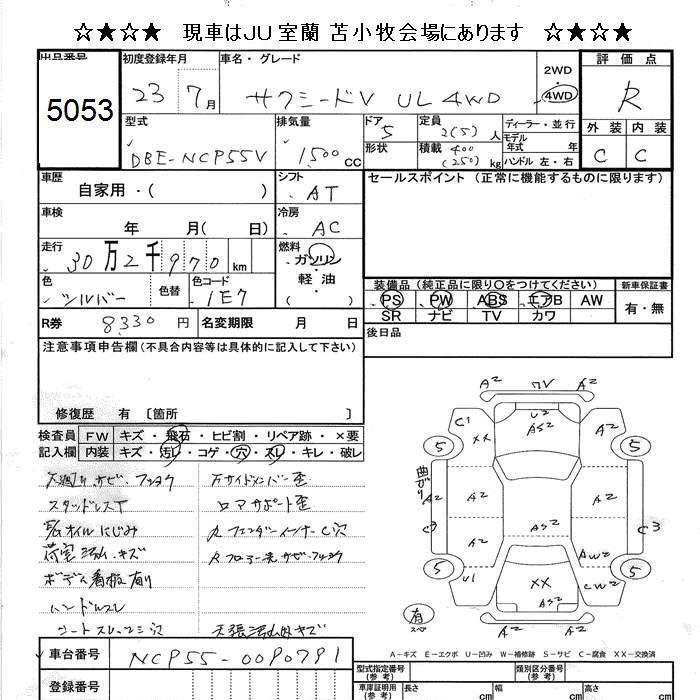 ☆★☆★ 現車はJU室蘭 苫小牧会場にあります ☆★☆★
出品番号 初度登録年月 車名・グレード 2WD 評価点
5053 23 7月 サクシードV UL 4WD 4WD R
型式 排気量 ドア 定員 ディーラー・並行 外装 内装
DBE-NCP55V 1500cc 5 2(5)人 モデル年式 年
形状 積載 400(250)kg ハンドル 左・右 C C
車歴 自家用・( ) シフト AT セールスポイント (正常に機能するものに限ります)
車検 年 月( 日) 冷房 AC
走行 30万2千970km 燃料 ガソリン
色 シルバー 色替 色コード 1E7 軽・油
装備品 (純正品に限り○をつけてください) 新車保証書
PS PW ABS エアB AW 有・無
SR ナビ TV カワ
R券 8330円 名変期限 月 日 後日品
注意事項申告欄 (不具合内容等は具体的に記入して下さい)
修復歴 有 〔箇所 〕
検査員 FW キズ・飛石・ヒビ割・リペア跡・×要
記入欄 内装 キズ・汚レ・コゲ・穴・スレ・キレ・破レ
下廻りサビ・フショク
スタッドレスT
E/Gオイルにじみ
荷室汚レ・キズ
ボディ看板有り
ハンドルスレ
シートスレ
サイドメンバー歪
コアサポート歪
フェンダーインナーC穴
フロアー先サビ・フショク
天張汚レ
A2 A2
C1 XX U2 AS2 A2
5 5
曲がり
A2 A2 A2
C3 AS2 C3
A2 AW2
5 U1 XX AS2 CW2 5
有 スペ
A2 A2
A-キズ E-エクボ U-凹み W-補修跡 S-サビ C-腐食 XX-交換済
車台番号 NCP55-0090791
登録番号
型式指定番号(参考) 類別区分番号(参考)
車庫証明用(参考) 長さ cm 幅 cm 高さ cm